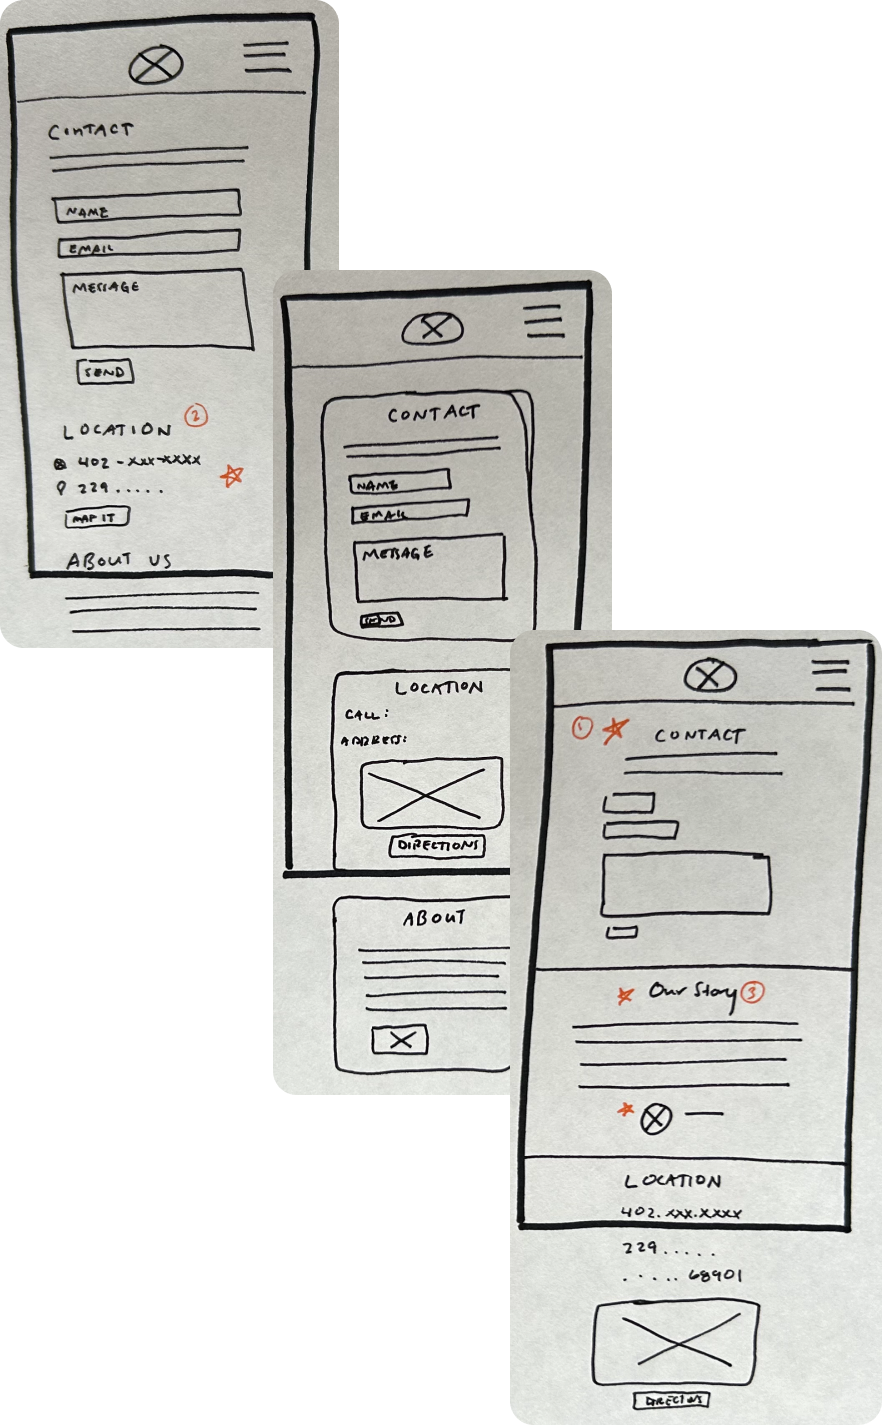 CONTACT
NAME
EMAIL
MESSAGE
SEND
LOCATION 2
402-XXX-XXXX
229.....
MAP IT
ABOUT US
CONTACT
NAME
EMAIL
MESSAGE
SEND
LOCATION
CALL:
ADDRESS:
DIRECTIONS
ABOUT
1 CONTACT
Our Story 3
LOCATION
402.XXX.XXXX
229.....
..... 68901
DIRECTIONS